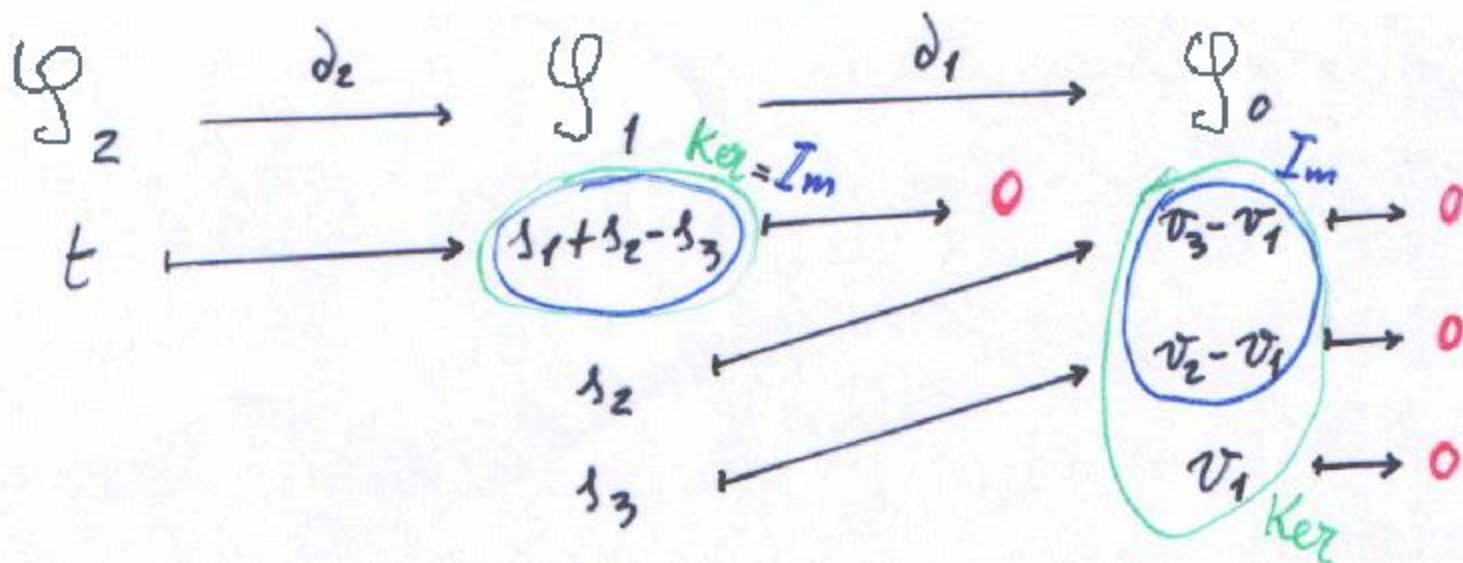 φ₂ ∂₂ φ₁ ∂₁ φ₀
Ker = Im
Im
t s₁+s₂-s₃ 0 v₃-v₁ 0
v₂-v₁ 0
s₂
s₃ v₁ 0
Ker